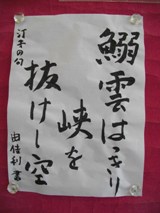 鰯雲はっきり
峡を
抜けし空
汀子の句
由佳利書